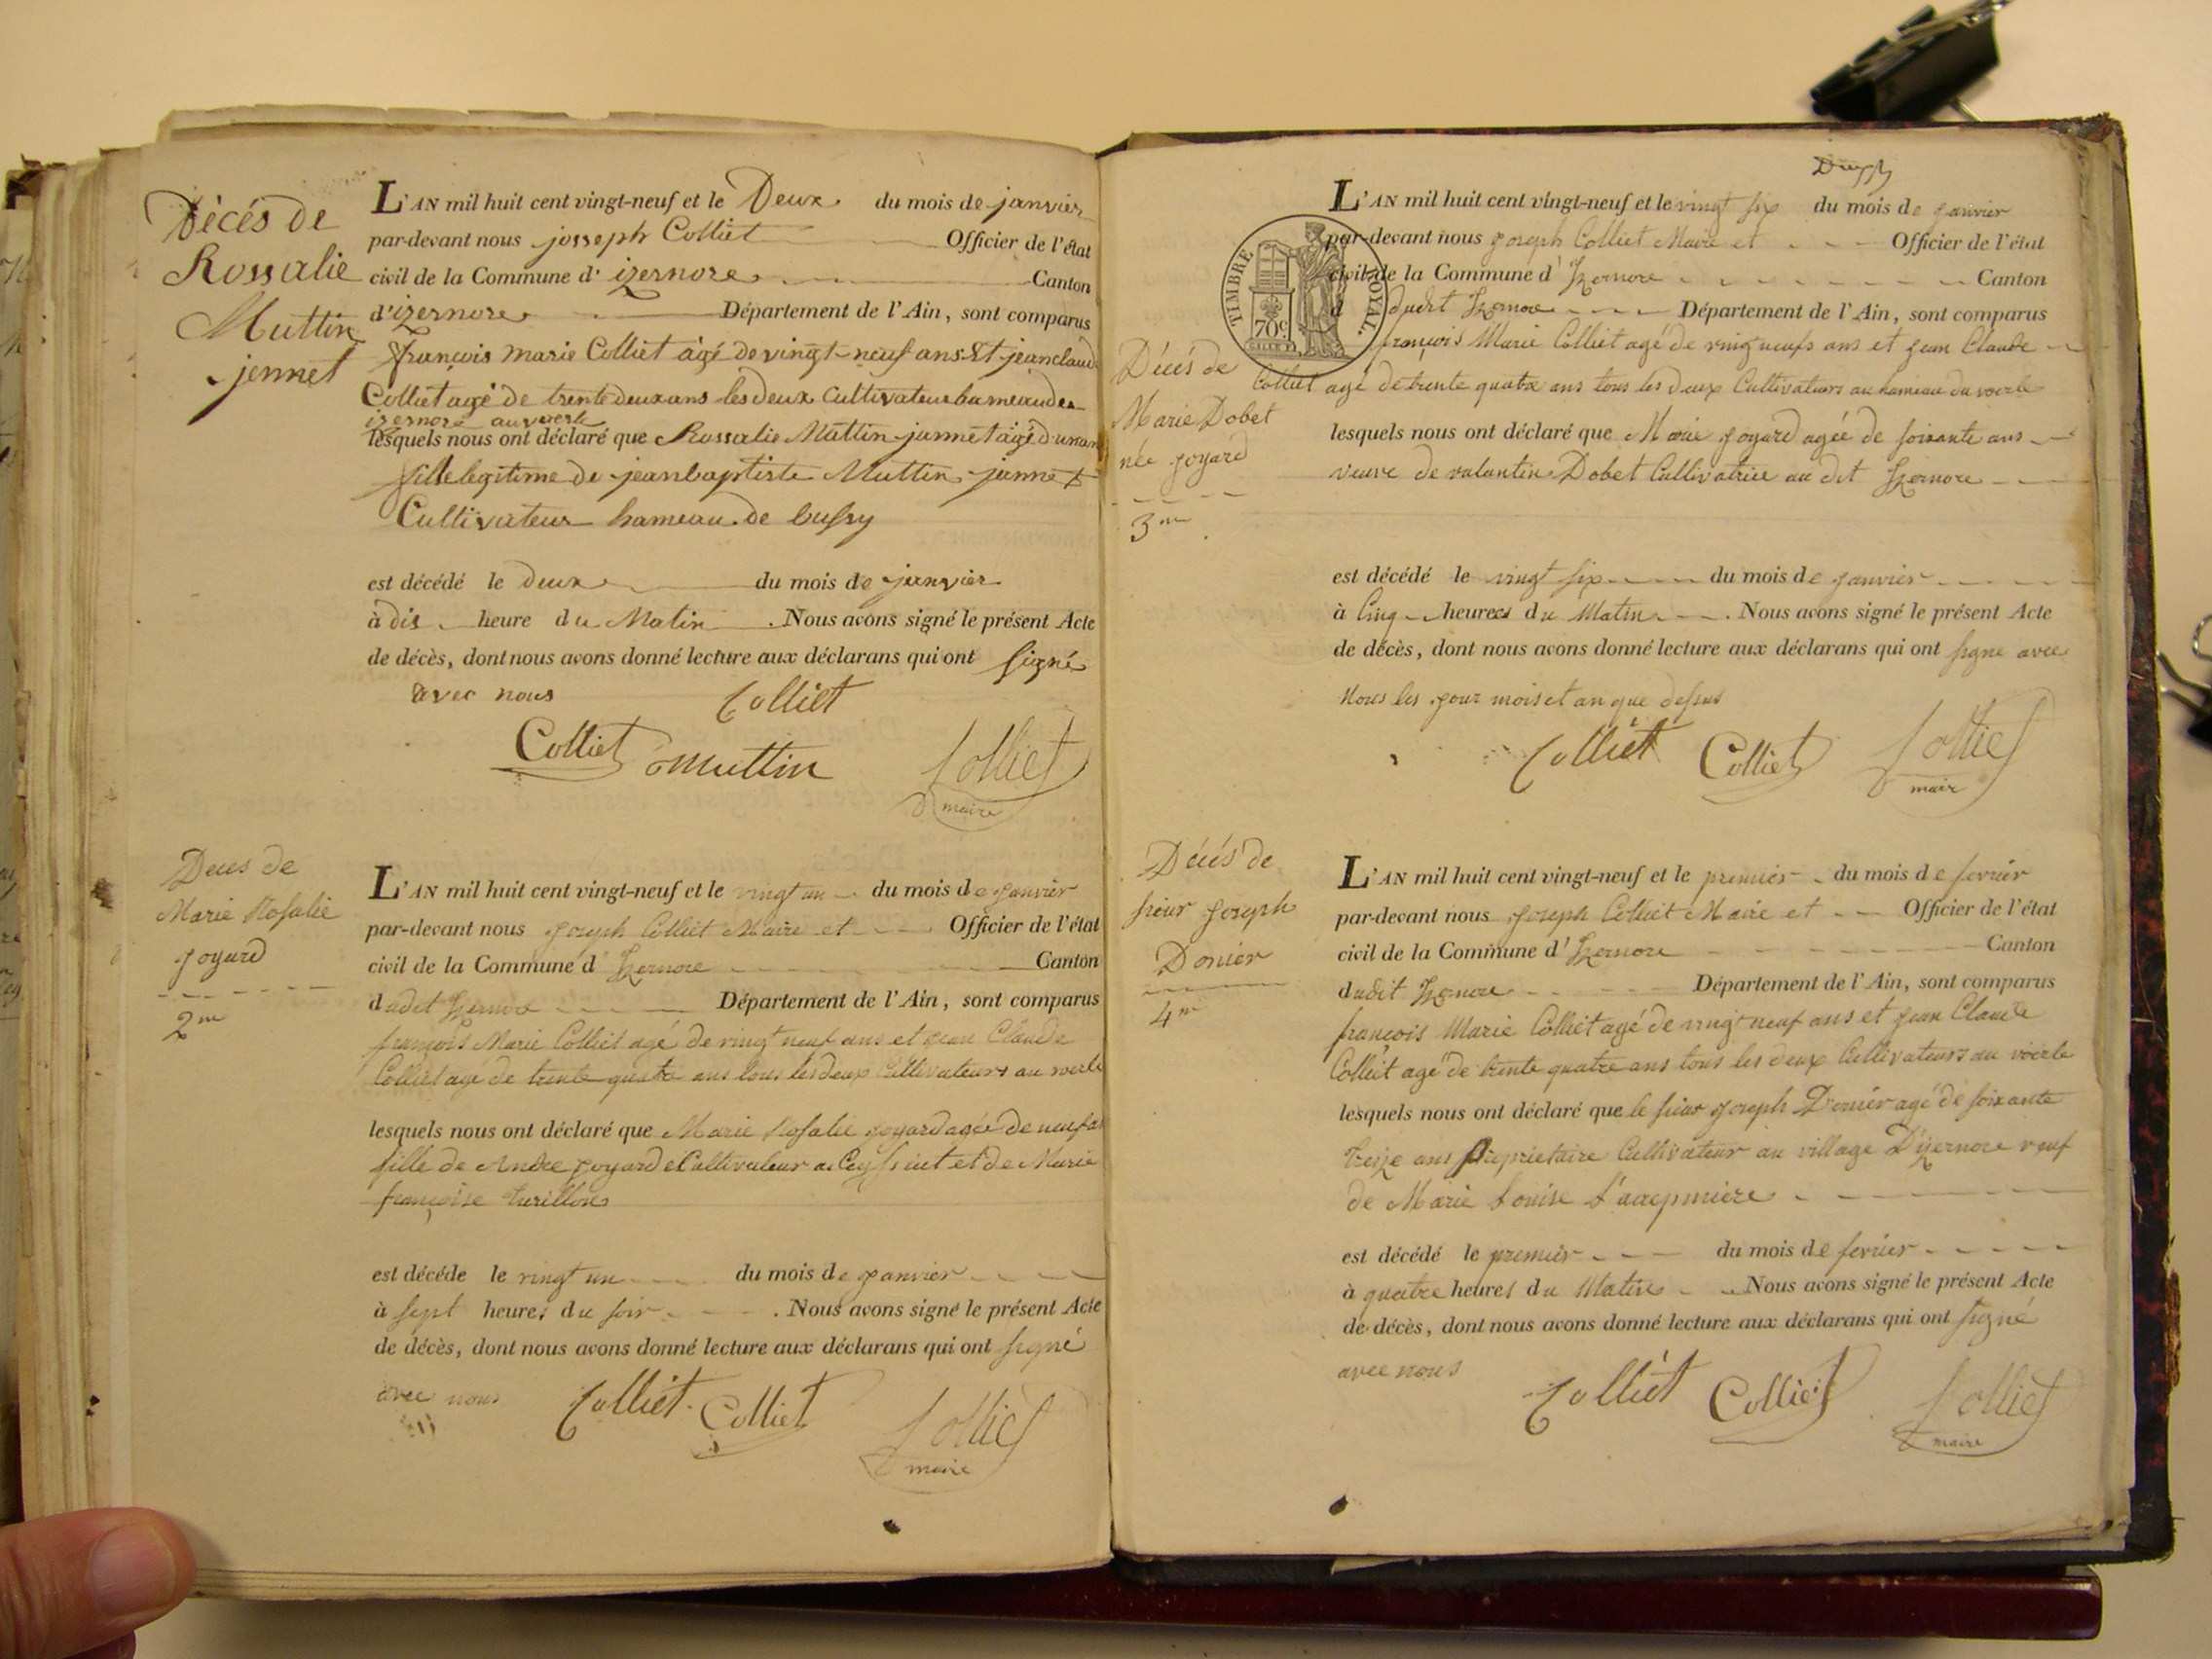 Décés de
Rossalie
Muttin
jennet
L'AN mil huit cent vingt-neuf et le Deux du mois de janvier
par-devant nous josseph Colliet Officier de l'état
civil de la Commune d' izernore Canton
d'izernore Département de l'Ain, sont comparus
françois marie Colliet âgé de vingt-neuf ans Et jean claude
Colliet agé de trente deux ans les deux Cultivateur hameau de
izernore au voerle
lesquels nous ont déclaré que Rossalie Muttin jannet âgé d'un an
fille legitime de jean baptiste Muttin jannet
Cultivateur hameau de bussy
est décédé le deux du mois de janvier
à dis heure du Matin . Nous avons signé le présent Acte
de décès, dont nous avons donné lecture aux déclarans qui ont signé
avec nous Colliet
Colliet Muttin Colliet
maire
Deces de
Marie Rosalie
joyard
2me
L'AN mil huit cent vingt-neuf et le vingt un du mois de janvier
par-devant nous joseph Colliet Maire et Officier de l'état
civil de la Commune d' Izernore Canton
dudit Izernore Département de l'Ain, sont comparus
françois Marie Colliet agé de vingt neuf ans et jean Claude
Colliet age de trente quatre ans tous les deux Cultivateurs au voerle
lesquels nous ont déclaré que Marie Rosalie joyard agée de neuf a
fille de Andre joyard Cultivateur a Ceyssiat et de Marie
françoise turillon
est décéde le vingt un du mois de janvier
à sept heures du soir . Nous avons signé le présent Acte
de décès, dont nous avons donné lecture aux déclarans qui ont signé
avec nous Colliet Colliet Colliet
maire
L'AN mil huit cent vingt-neuf et le vingt six du mois de janvier
par-devant nous joseph Colliet Maire et Officier de l'état
civil de la Commune d' Izernore Canton
d dudit Izernore Département de l'Ain, sont comparus
TIMBRE ROYAL.
70c
françois Marie Colliet agé de vingt neufs ans et jean Claude
Colliet agé de trente quatre ans tous les deux Cultivateurs au hameau du voerle
Décés de
Marie Dobet
née joyard
3me
lesquels nous ont déclaré que Marie joyard agée de soixante ans
veuve de valantin Dobet Cultivatrice au dit Izernore
est décédé le vingt six du mois de janvier
à Cinq heures du Matin . Nous avons signé le présent Acte
de décès, dont nous avons donné lecture aux déclarans qui ont signe avec
Nous les jour mois et an que dessus
Colliet Colliet Colliet
mair
Décés de
sieur joseph
Donier
4me
L'AN mil huit cent vingt-neuf et le premier du mois de fevrier
par-devant nous joseph Colliet Maire et Officier de l'état
civil de la Commune d' Izernore Canton
dudit Izernore Département de l'Ain, sont comparus
françois Marie Colliet agé de vingt neuf ans et jean Claude
Colliet agé de trente quatre ans tous les deux Cultivateurs au voerle
lesquels nous ont déclaré que le sieur joseph Donier agé de soixante
treize ans propriétaire Cultivateur au village D'izernore veuf
de Marie Louise
est décédé le premier du mois de fevrier
à quatre heures du Matin . Nous avons signé le présent Acte
de décès, dont nous avons donné lecture aux déclarans qui ont signé
avec nous
Colliet Colliet Colliet
maire